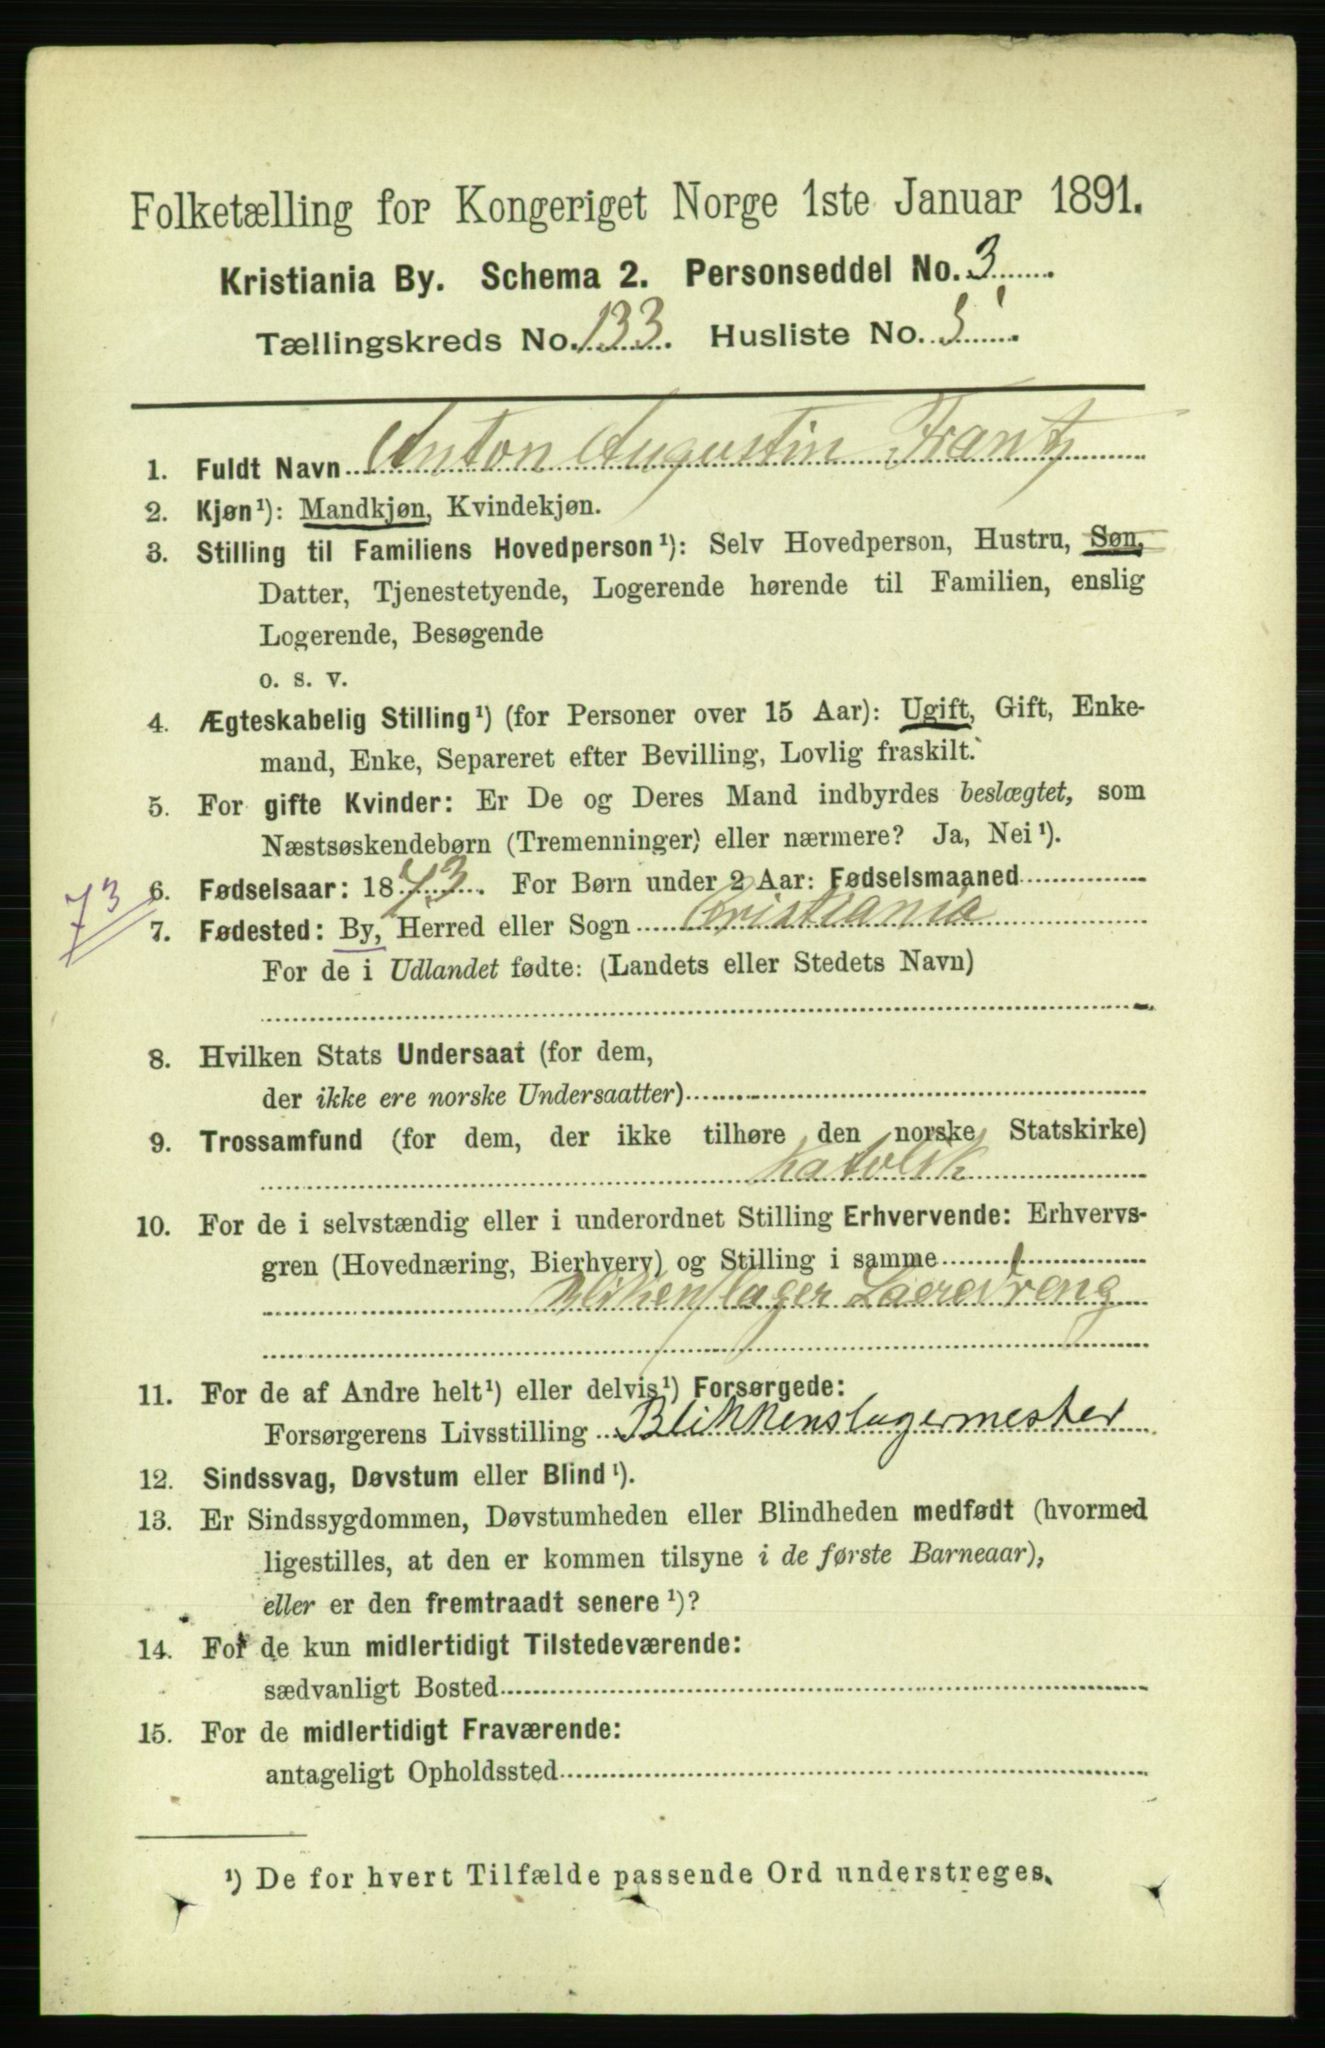 Folketælling for Kongeriget Norge 1ste Januar 1891.
Kristiania By. Schema 2. Personseddel No. 3
Tællingskreds No. 133. Husliste No. 5.
1. Fuldt Navn Anton Augustin Frantz
2. Kjøn¹): Mandkjøn, Kvindekjøn.
3. Stilling til Familiens Hovedperson¹): Selv Hovedperson, Hustru, Søn,
Datter, Tjenestetyende, Logerende hørende til Familien, enslig
Logerende, Besøgende
o. s. v.
4. Ægteskabelig Stilling¹) (for Personer over 15 Aar): Ugift, Gift, Enke-
mand, Enke, Separeret efter Bevilling, Lovlig fraskilt.
5. For gifte Kvinder: Er De og Deres Mand indbyrdes beslægtet, som
Næstsøskendebørn (Tremenninger) eller nærmere? Ja, Nei¹).
73 6. Fødselsaar: 1873. For Børn under 2 Aar: Fødselsmaaned
7. Fødested: By, Herred eller Sogn Cristiania
For de i Udlandet fødte: (Landets eller Stedets Navn)
8. Hvilken Stats Undersaat (for dem,
der ikke ere norske Undersaatter)
9. Trossamfund (for dem, der ikke tilhøre den norske Statskirke)
Katolsk
10. For de i selvstændig eller i underordnet Stilling Erhvervende: Erhvervs-
gren (Hovednæring, Bierhverv) og Stilling i samme
Blikenslager Laeredreng
11. For de af Andre helt¹) eller delvis¹) Forsørgede:
Forsørgerens Livsstilling Blikkenslagermester
12. Sindssvag, Døvstum eller Blind¹).
13. Er Sindssygdommen, Døvstumheden eller Blindheden medfødt (hvormed
ligestilles, at den er kommen tilsyne i de første Barneaar),
eller er den fremtraadt senere¹)?
14. For de kun midlertidigt Tilstedeværende:
sædvanligt Bosted
15. For de midlertidigt Fraværende:
antageligt Opholdssted
¹) De for hvert Tilfælde passende Ord understreges.